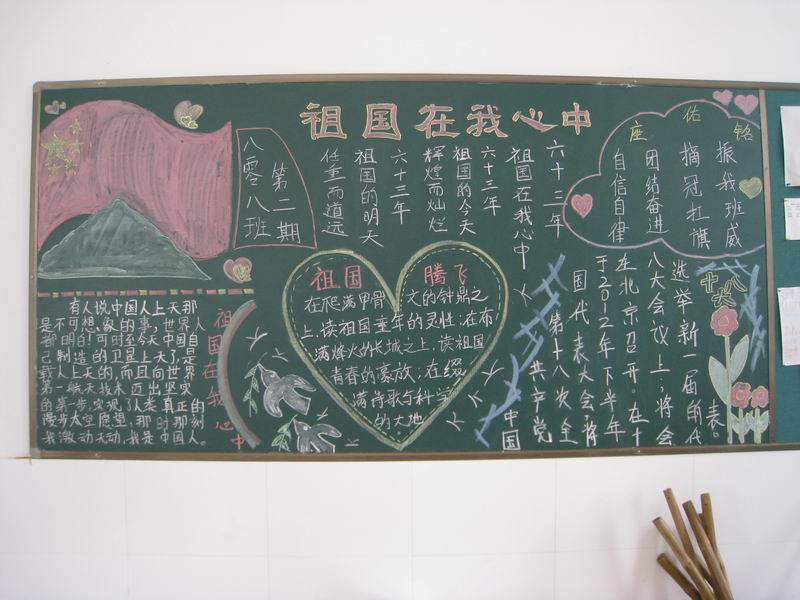 祖国在我心中
八零八班
第二期
六十三年
祖国在我心中
六十三年
祖国的今天
辉煌而灿烂
六十三年
祖国的明天
任重而道远
座佑铭
振我班威
摘冠扛旗
团结奋进
自信自律
祖国 腾飞
在爬满甲骨文的钟鼎之
上,读祖国童年的灵性;在布
满烽火的长城之上,读祖国
青春的豪放;在缀
满诗歌与科学
的大地
有人说中国人上天那
是不可想象的事,世界人
都明白!可时至今天中国自
己制造的卫星上天了,是
载人上天的,而且向世界
第一航天技术迈出坚实
的第一步,实现了人类真正的
漫步太空愿望,那时那刻
我激动无动,我是中国人。
祖国在我心中
十八大
中国
共产党
第十八次全
国代表大会将
于2012年下半年
在北京召开。在十
八大会议上,将会
选举新一届的代
表。